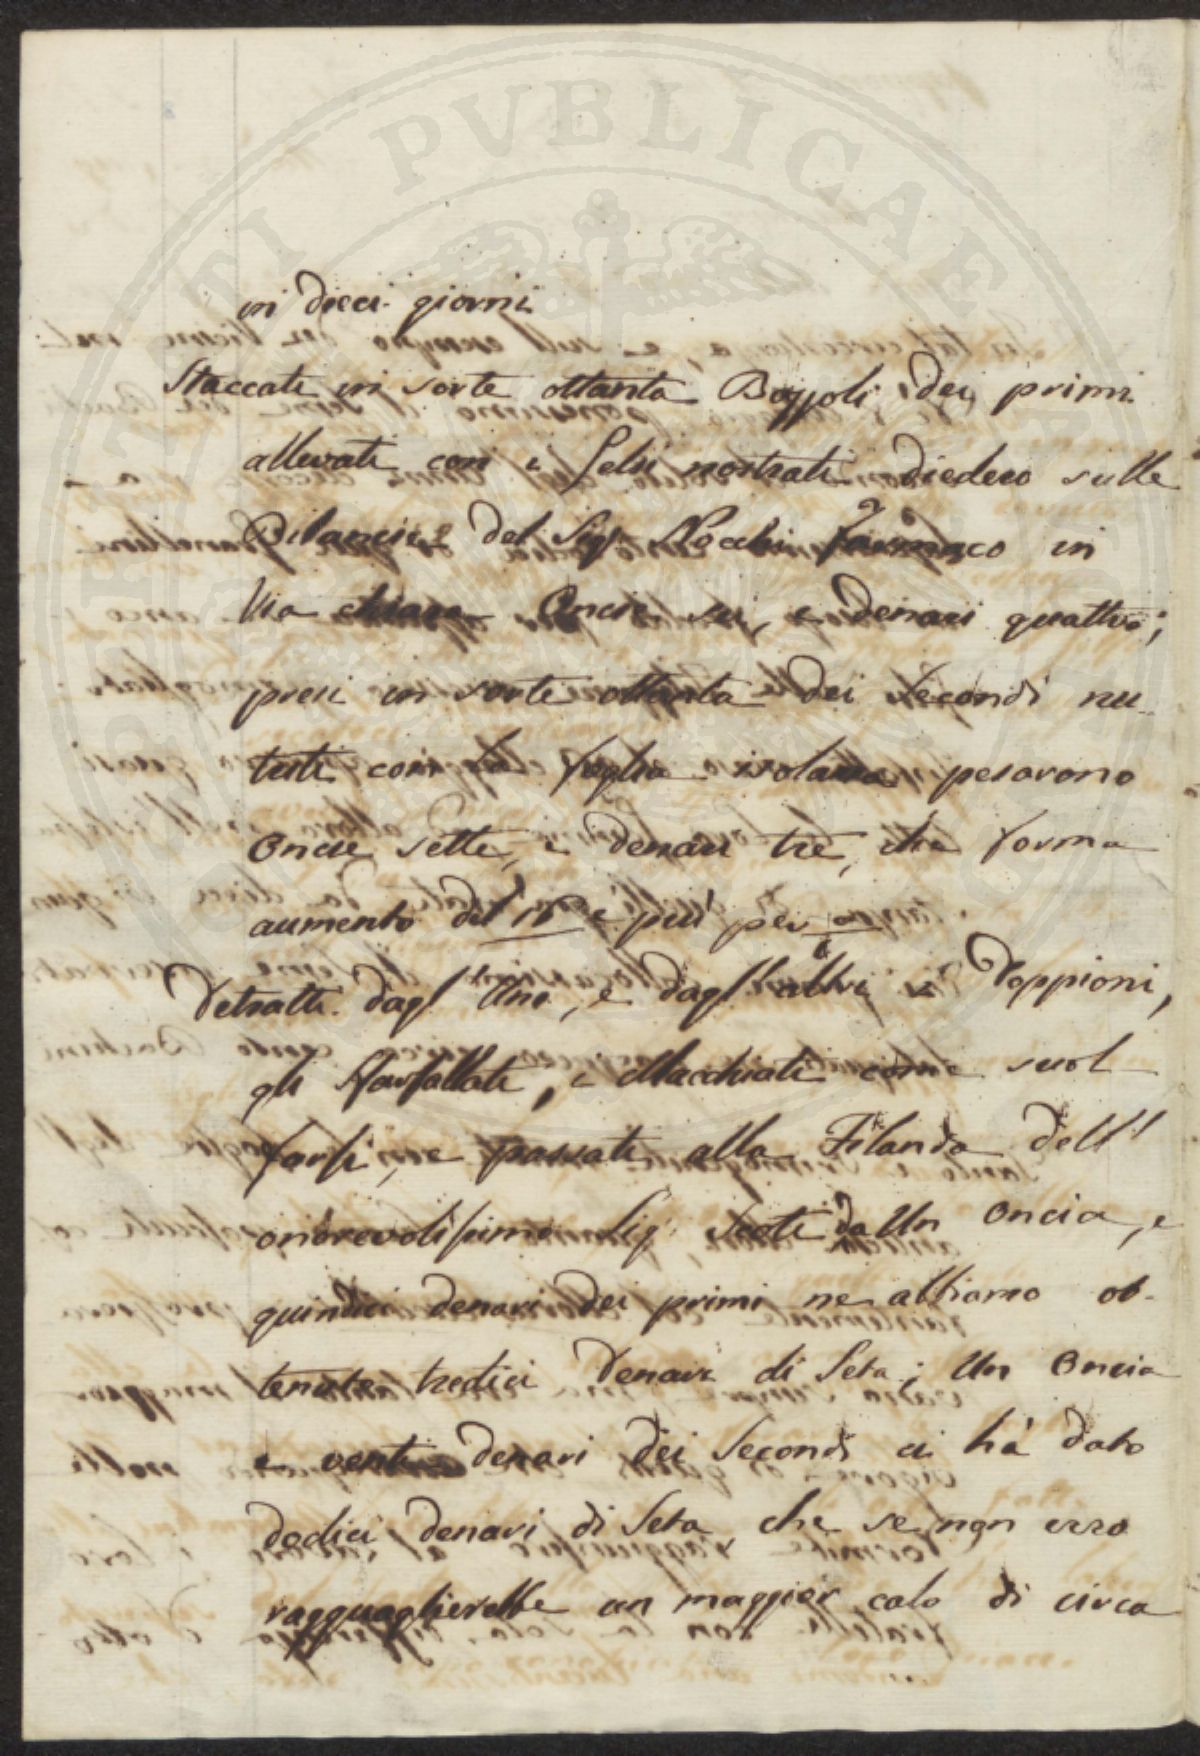 PVBLICAE
in dieci giorni
Staccati in sorte ottanta Bozzoli dei primi
allevati con i Gelsi nostrati diedero sulle
Bilancie del Sig.r Nocchi Farmaco in
Via chiara Oncie sei, e denari quattro;
presi in sorte ottanta dei secondi nu-
triti con la foglia isolana pesarono
Oncie sette, e denari tre, che forma
aumento del 15 e più per
Detratti dagl'uni, e dagl'altri i Doppioni,
gli Sfarfallati, e Macchiati come suol
farsi, e passati alla Filanda dell'
onorevolissimo Sig. Scoti da Un Oncia, e
quindici denari dei primi ne abbiamo ot-
tenuto tredici Denari di Seta; Un Oncia
e venti denari dei Secondi ci hà dato
dodici denari di Seta, che se non erro
ragguaglierebbe un maggior calo di circa